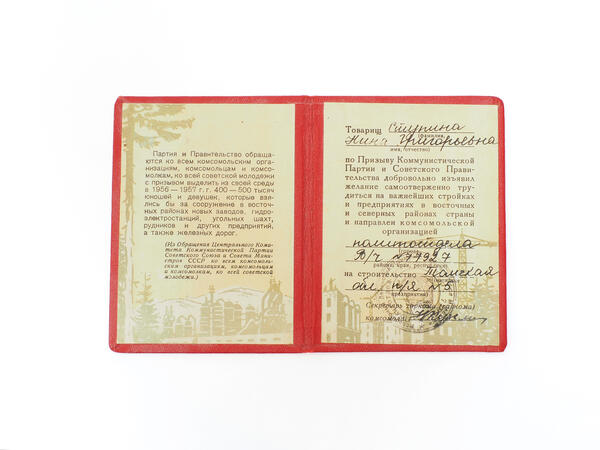 Партия и Правительство обраща-
ются ко всем комсомольским орга-
низациям, комсомольцам и комсо-
молкам, ко всей советской молодежи
с призывом выделить из своей среды
в 1956 — 1957 г. г. 400 — 500 тысяч
юношей и девушек, которые взя-
лись бы за сооружение в восточ-
ных районах новых заводов, гидро-
электростанций, угольных шахт,
рудников и других предприятий,
а также железных дорог.
(Из Обращения Центрального Коми-
тета Коммунистической Партии
Советского Союза и Совета Мини-
стров СССР ко всем комсомоль-
ским организациям, комсомольцам
и комсомолкам, ко всей советской
молодежи.)
Товарищ Ступина
(фамилия,
Нина Григорьевна
имя, отчество)
по Призыву Коммунистической
Партии и Советского Прави-
тельства добровольно изъявил
желание самоотверженно тру-
диться на важнейших стройках
и предприятиях в восточных
и северных районах страны
и направлен комсомольской
организацией
политотдела
В/ч №77927
района, края, республики)
на строительство Томская
обл, п/я №5
предприятия)
Секретарь горкома (райкома)
комсомола